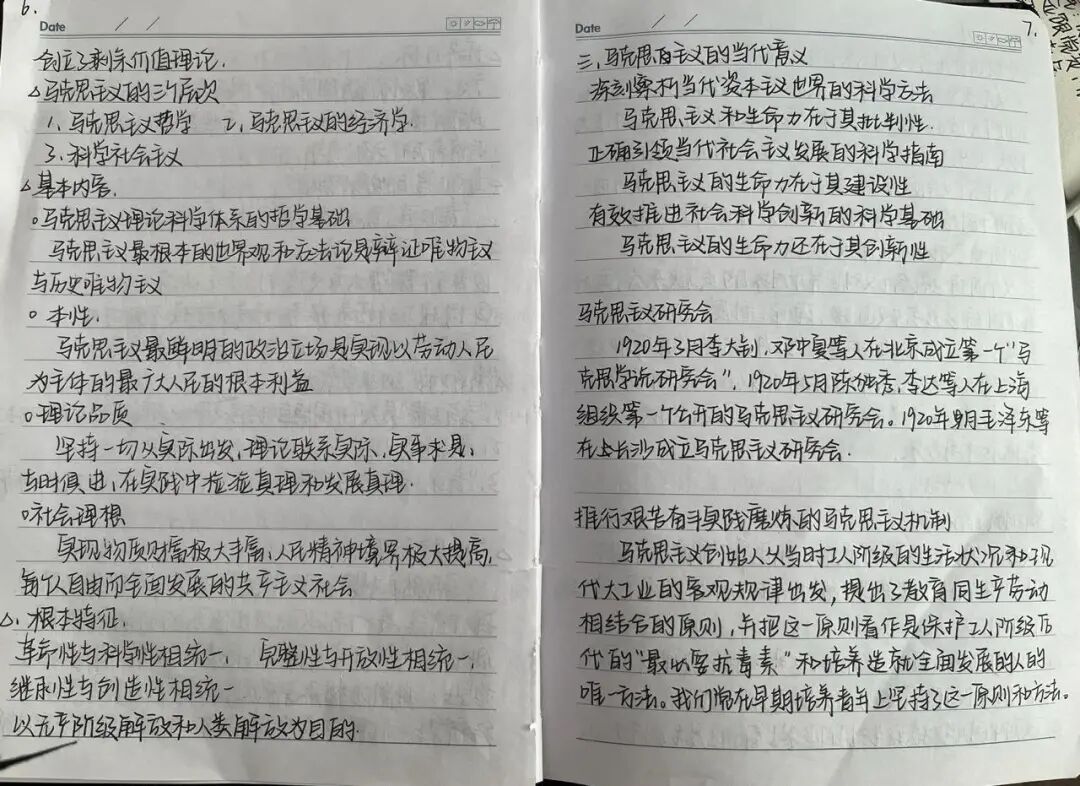 6.
Date / /
创立了剩余价值理论.
△马克思主义的三个层次
1、马克思主义哲学 2、马克思主义的经济学.
3、科学社会主义
△基本内容.
○马克思主义理论科学体系的哲学基础
马克思主义最根本的世界观和方法论是辩证唯物主义
与历史唯物主义
○ 本性.
马克思主义最鲜明的政治立场是实现以劳动人民
为主体的最广大人民的根本利益
○理论品质
坚持一切从实际出发,理论联系实际,实事求是,
与时俱进,在实践中检验真理和发展真理.
○社会理想
实现物质财富极大丰富,人民精神境界极大提高,
每个人自由而全面发展的共产主义社会
△. 根本特征.
革命性与科学性相统一. 完整性与开放性相统一.
继承性与创造性相统一
以无产阶级解放和人类解放为目的.
7.
Date / /
三、马克思主义的当代意义
深刻察析当代资本主义世界的科学方法
马克思主义和生命力在于其批判性.
正确引领当代社会主义发展的科学指南
马克思主义的生命力在于其建设性
有效推进社会科学创新的科学基础
马克思主义的生命力还在于其创新性
马克思主义研究会
1920年3月李大钊,邓中夏等人在北京成立第一个"马
克思学说研究会",1920年5月陈独秀,李达等人在上海
组织第一个公开的马克思主义研究会。1920年 月毛泽东等
在 长沙成立马克思主义研究会.
推行艰苦奋斗实践磨炼的马克思主义机制
马克思主义创始人从当时工人阶级的生活状况和现
代大工业的客观规律出发,提出了教育同生产劳动
相结合的原则,并把这一原则看作是保护工人阶级后
代的"最必要抗毒素"和培养造就全面发展的人的
唯一方法。我们党在早期培养青年上坚持了这一原则和方法。